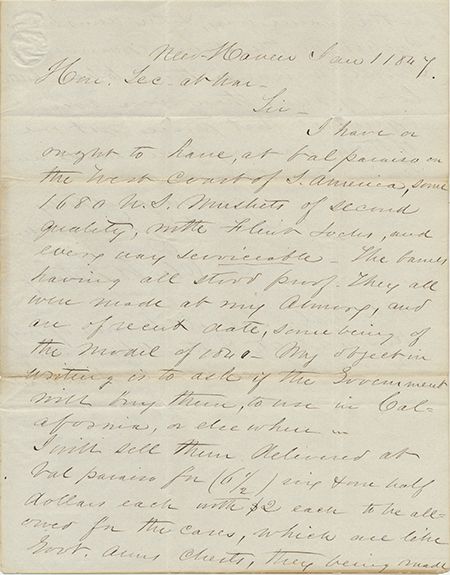 New Haven Jan 1 1847.
Hon. Sec. at War -
Sir -
I have or
ought to have, at Val paraiso on
the West Coast of S. America, some
1680 U.S. Muskets of second
quality, with Flint Locks, and
every way serviceable - The barrels
having all stood proof. They all
were made at my Armory, and
are of recent date, some being of
the model of 1840 - My object in
writing is to ask if the Government
will buy them, to use in Cal-
afornia, or elsewhere -
I will sell them delivered at
Val paraiso for (6 1/2) six & one half
dollars each with $2 each to be all-
owed for the cases, which are like
Govt. arms chests, they being made